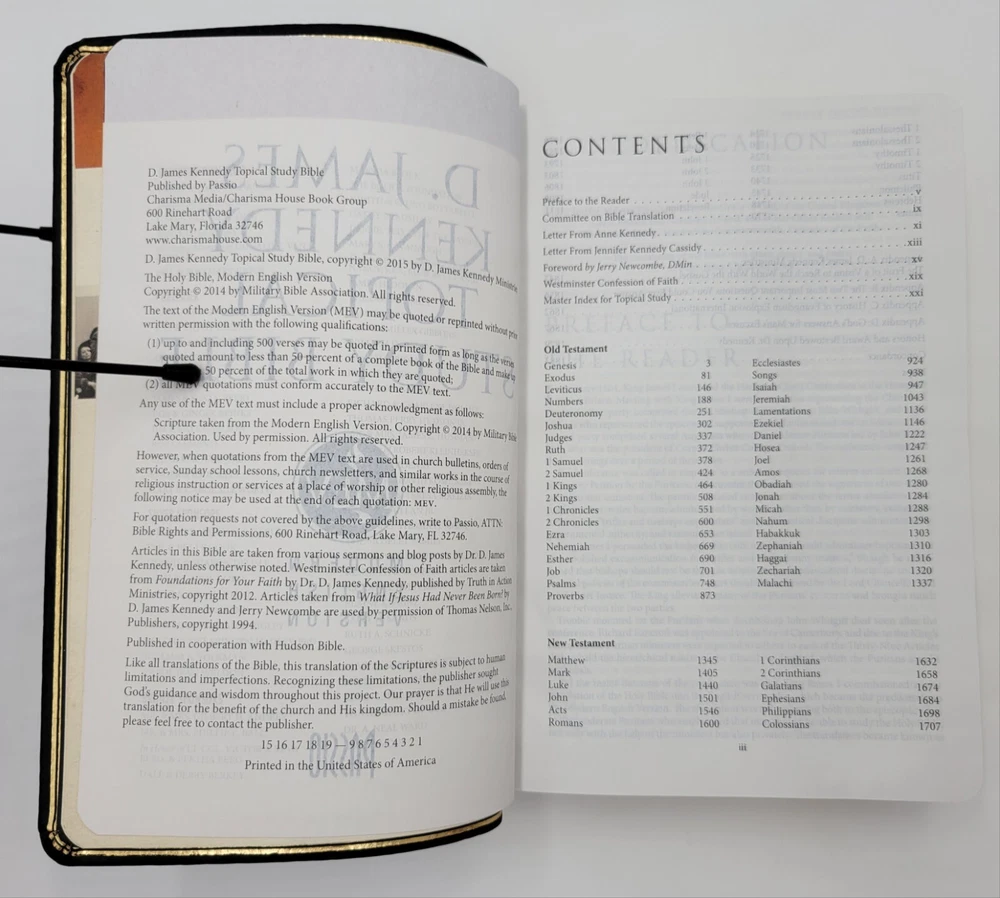 D. James Kennedy Topical Study Bible
Published by Passio
Charisma Media/Charisma House Book Group
600 Rinehart Road
Lake Mary, Florida 32746
www.charismahouse.com
D. James Kennedy Topical Study Bible, copyright © 2015 by D. James Kennedy Ministries
The Holy Bible, Modern English Version
Copyright © 2014 by Military Bible Association. All rights reserved.
The text of the Modern English Version (MEV) may be quoted or reprinted without prior
written permission with the following qualifications:
(1) up to and including 500 verses may be quoted in printed form as long as the verses
quoted amount to less than 50 percent of a complete book of the Bible and make up
50 percent of the total work in which they are quoted;
(2) all MEV quotations must conform accurately to the MEV text.
Any use of the MEV text must include a proper acknowledgment as follows:
Scripture taken from the Modern English Version. Copyright © 2014 by Military Bible
Association. Used by permission. All rights reserved.
However, when quotations from the MEV text are used in church bulletins, orders of
service, Sunday school lessons, church newsletters, and similar works in the course of
religious instruction or services at a place of worship or other religious assembly, the
following notice may be used at the end of each quotation: MEV.
For quotation requests not covered by the above guidelines, write to Passio, ATTN:
Bible Rights and Permissions, 600 Rinehart Road, Lake Mary, FL 32746.
Articles in this Bible are taken from various sermons and blog posts by Dr. D. James
Kennedy, unless otherwise noted. Westminster Confession of Faith articles are taken
from Foundations for Your Faith by Dr. D. James Kennedy, published by Truth in Action
Ministries, copyright 2012. Articles taken from What If Jesus Had Never Been Born? by
D. James Kennedy and Jerry Newcombe are used by permission of Thomas Nelson, Inc.
Publishers, copyright 1994.
Published in cooperation with Hudson Bible.
Like all translations of the Bible, this translation of the Scriptures is subject to human
limitations and imperfections. Recognizing these limitations, the publisher sought
God's guidance and wisdom throughout this project. Our prayer is that He will use this
translation for the benefit of the church and His kingdom. Should a mistake be found,
please feel free to contact the publisher.
15 16 17 18 19 — 9 8 7 6 5 4 3 2 1
Printed in the United States of America
CONTENTS
Preface to the Reader . . . . . v
Committee on Bible Translation . . . . . ix
Letter From Anne Kennedy . . . . . xi
Letter From Jennifer Kennedy Cassidy . . . . . xiii
Foreword by Jerry Newcombe, DMin . . . . . xv
Westminster Confession of Faith . . . . . xix
Master Index for Topical Study . . . . . xxi
Old Testament
Genesis 3
Exodus 81
Leviticus 146
Numbers 188
Deuteronomy 251
Joshua 302
Judges 337
Ruth 372
1 Samuel 378
2 Samuel 424
1 Kings 464
2 Kings 508
1 Chronicles 551
2 Chronicles 600
Ezra 653
Nehemiah 669
Esther 690
Job 701
Psalms 748
Proverbs 873
Ecclesiastes 924
Songs 938
Isaiah 947
Jeremiah 1043
Lamentations 1136
Ezekiel 1146
Daniel 1222
Hosea 1247
Joel 1261
Amos 1268
Obadiah 1280
Jonah 1284
Micah 1288
Nahum 1298
Habakkuk 1303
Zephaniah 1310
Haggai 1316
Zechariah 1320
Malachi 1337
New Testament
Matthew 1345
Mark 1405
Luke 1440
John 1501
Acts 1546
Romans 1600
1 Corinthians 1632
2 Corinthians 1658
Galatians 1674
Ephesians 1684
Philippians 1698
Colossians 1707
iii